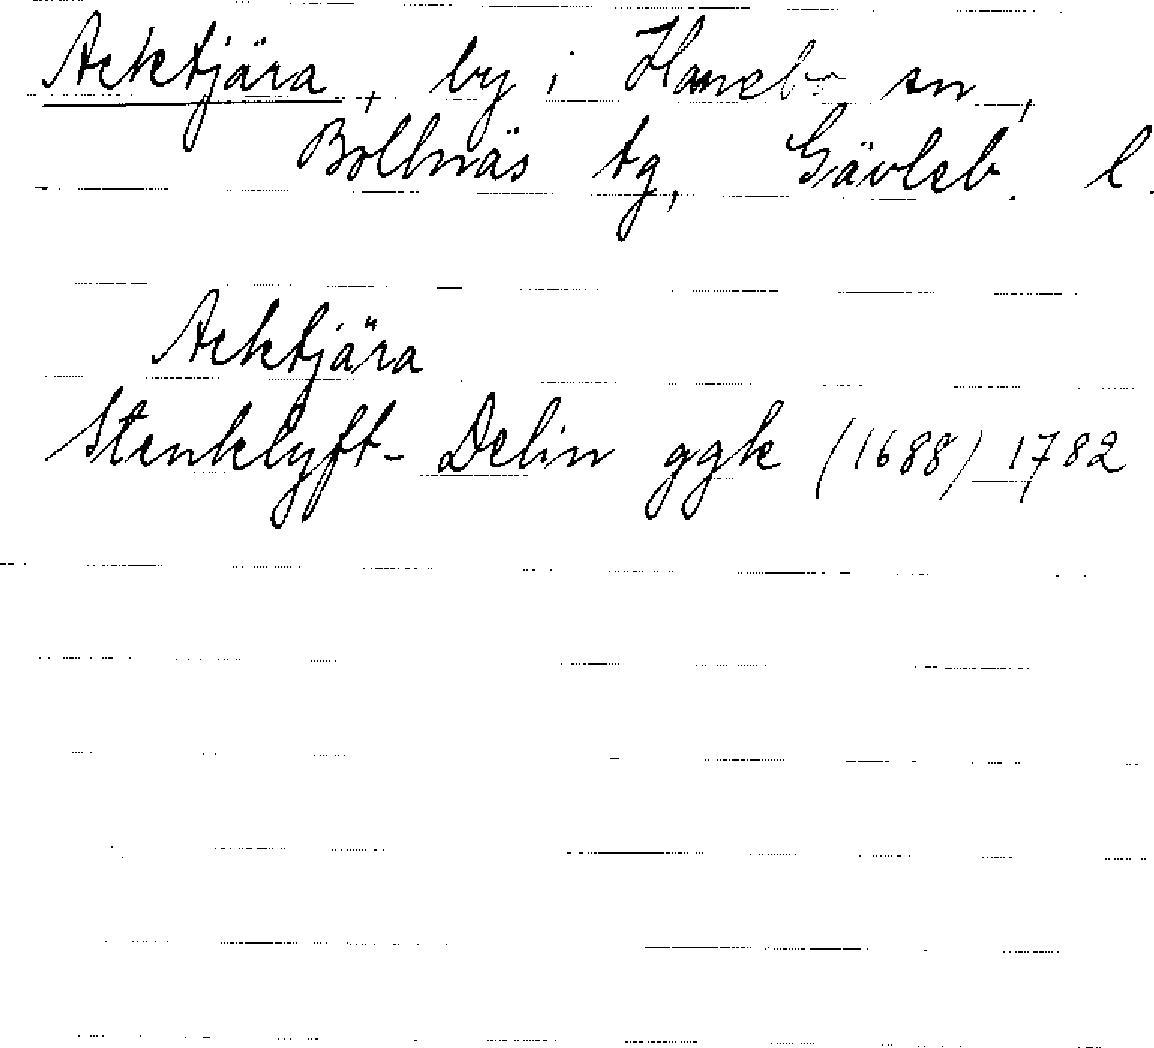 Acktjära, by i Hanebo sn,
Bollnäs tg, Gävleb. l.
Acktjära
Stenklyft- Delin ggk (1688) 1782